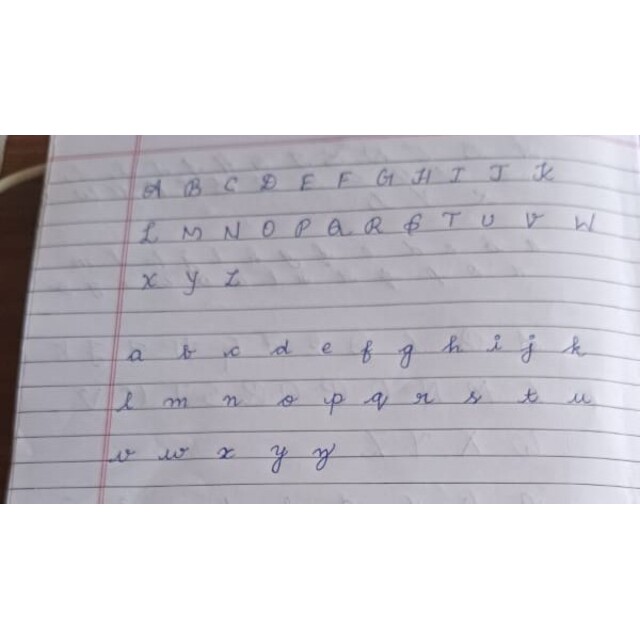 A B C D E F G H I J K
L M N O P Q R S T U V W
X Y Z
a b c d e f g h i j k
l m n o p q r s t u
v w x y z